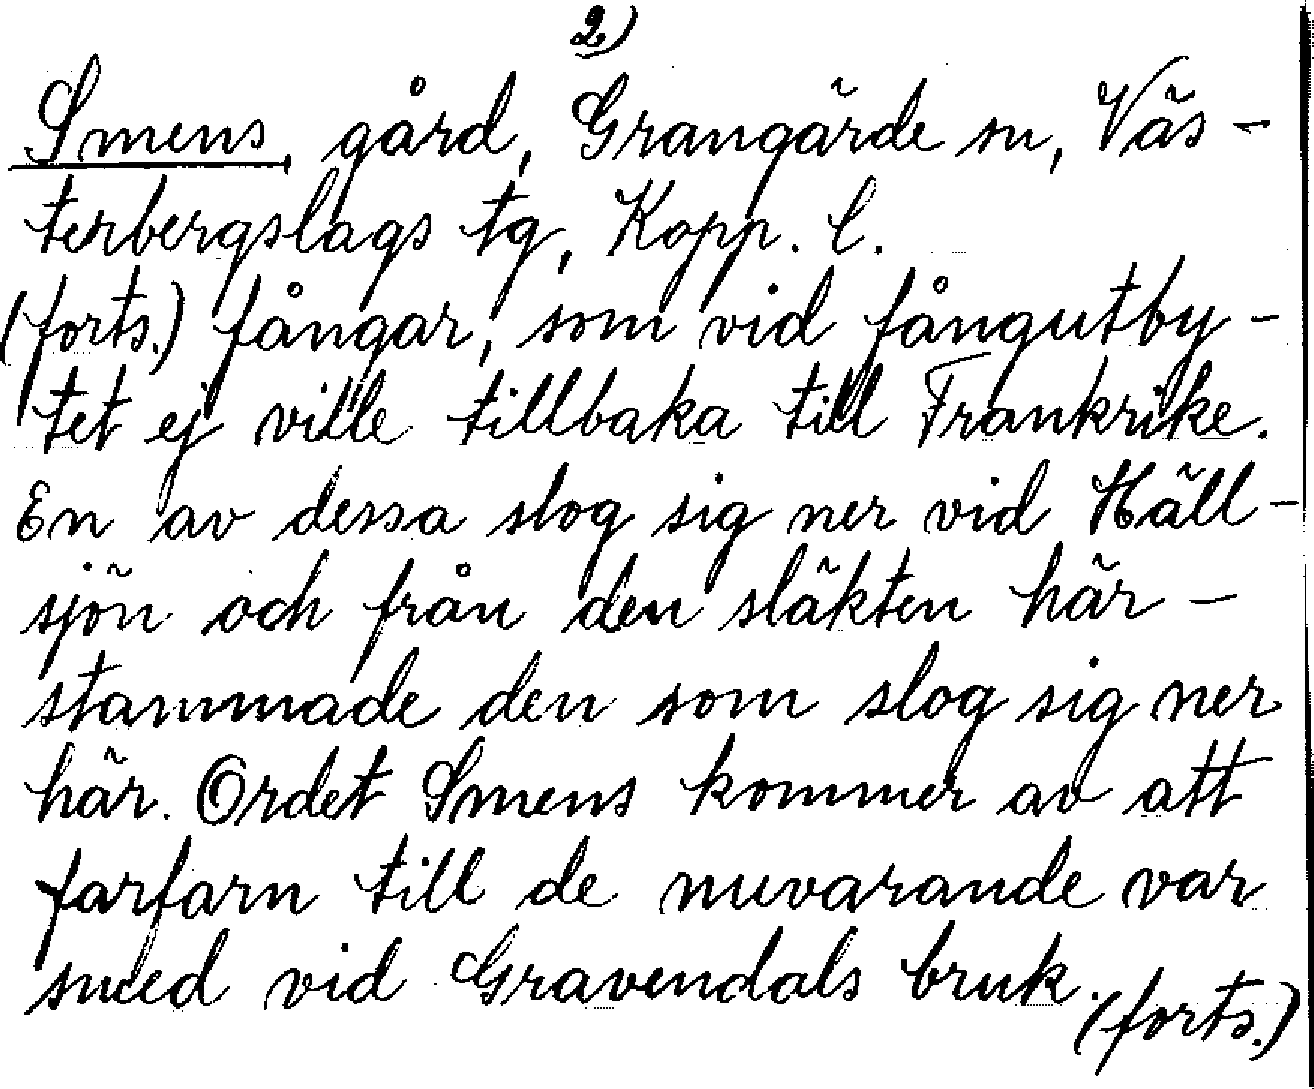 2)
Smens, gård, Grangärde sn, Väs-
terbergslags tg, Kopp. l.
(forts.) fångar, som vid fångutby-
tet ej ville tillbaka till Frankrike.
En av dessa slog sig ner vid Häll-
sjön och från den släkten här-
stammade den som slog sig ner
här. Ordet Smens kommer av att
farfarn till de nuvarande var
smed vid Gravendals bruk.
(forts.)